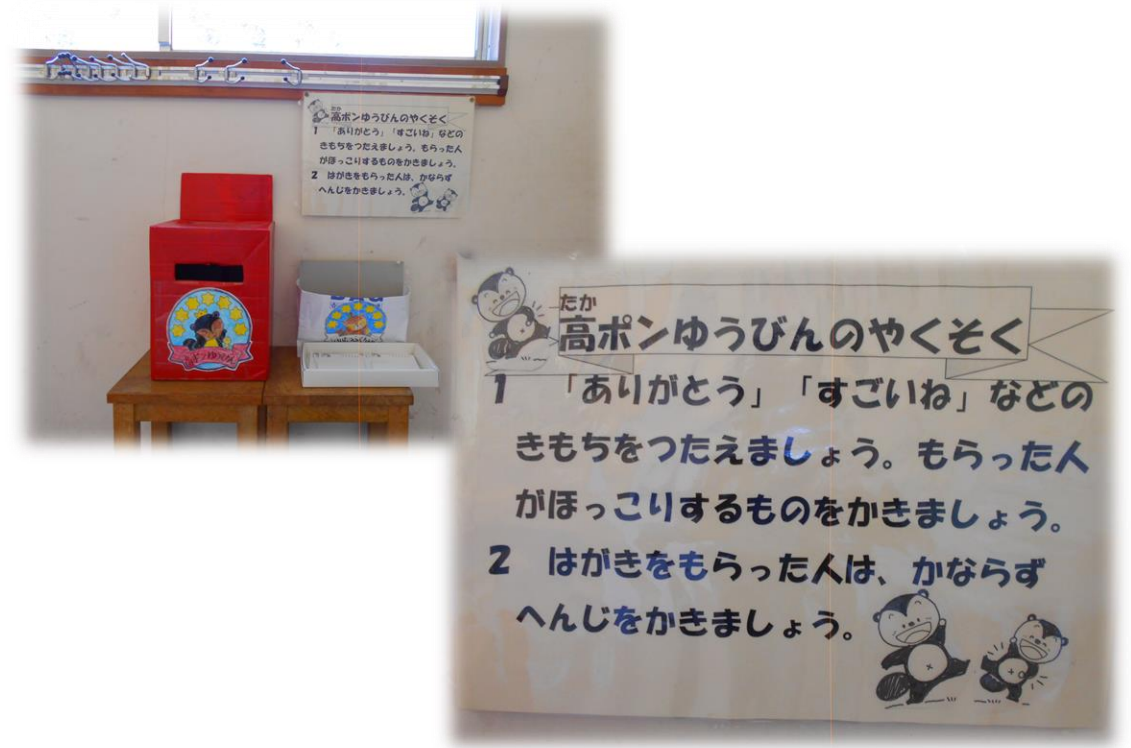 高ポンゆうびんのやくそく
1 「ありがとう」「すごいね」などの
きもちをつたえましょう。もらった人
がほっこりするものをかきましょう。
2 はがきをもらった人は、かならず
へんじをかきましょう。
たか
高ポンゆうびんのやくそく
1 「ありがとう」「すごいね」などの
きもちをつたえましょう。もらった人
がほっこりするものをかきましょう。
2 はがきをもらった人は、かならず
へんじをかきましょう。